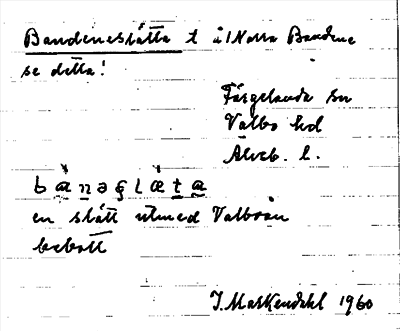 Bandeneslätta t ä 1 Norra Bandene
se detta!
Färgelanda sn
Valbo hd
Älvsb. l.
en slätt utmed Valboån
bebott
J. Markendahl 1960